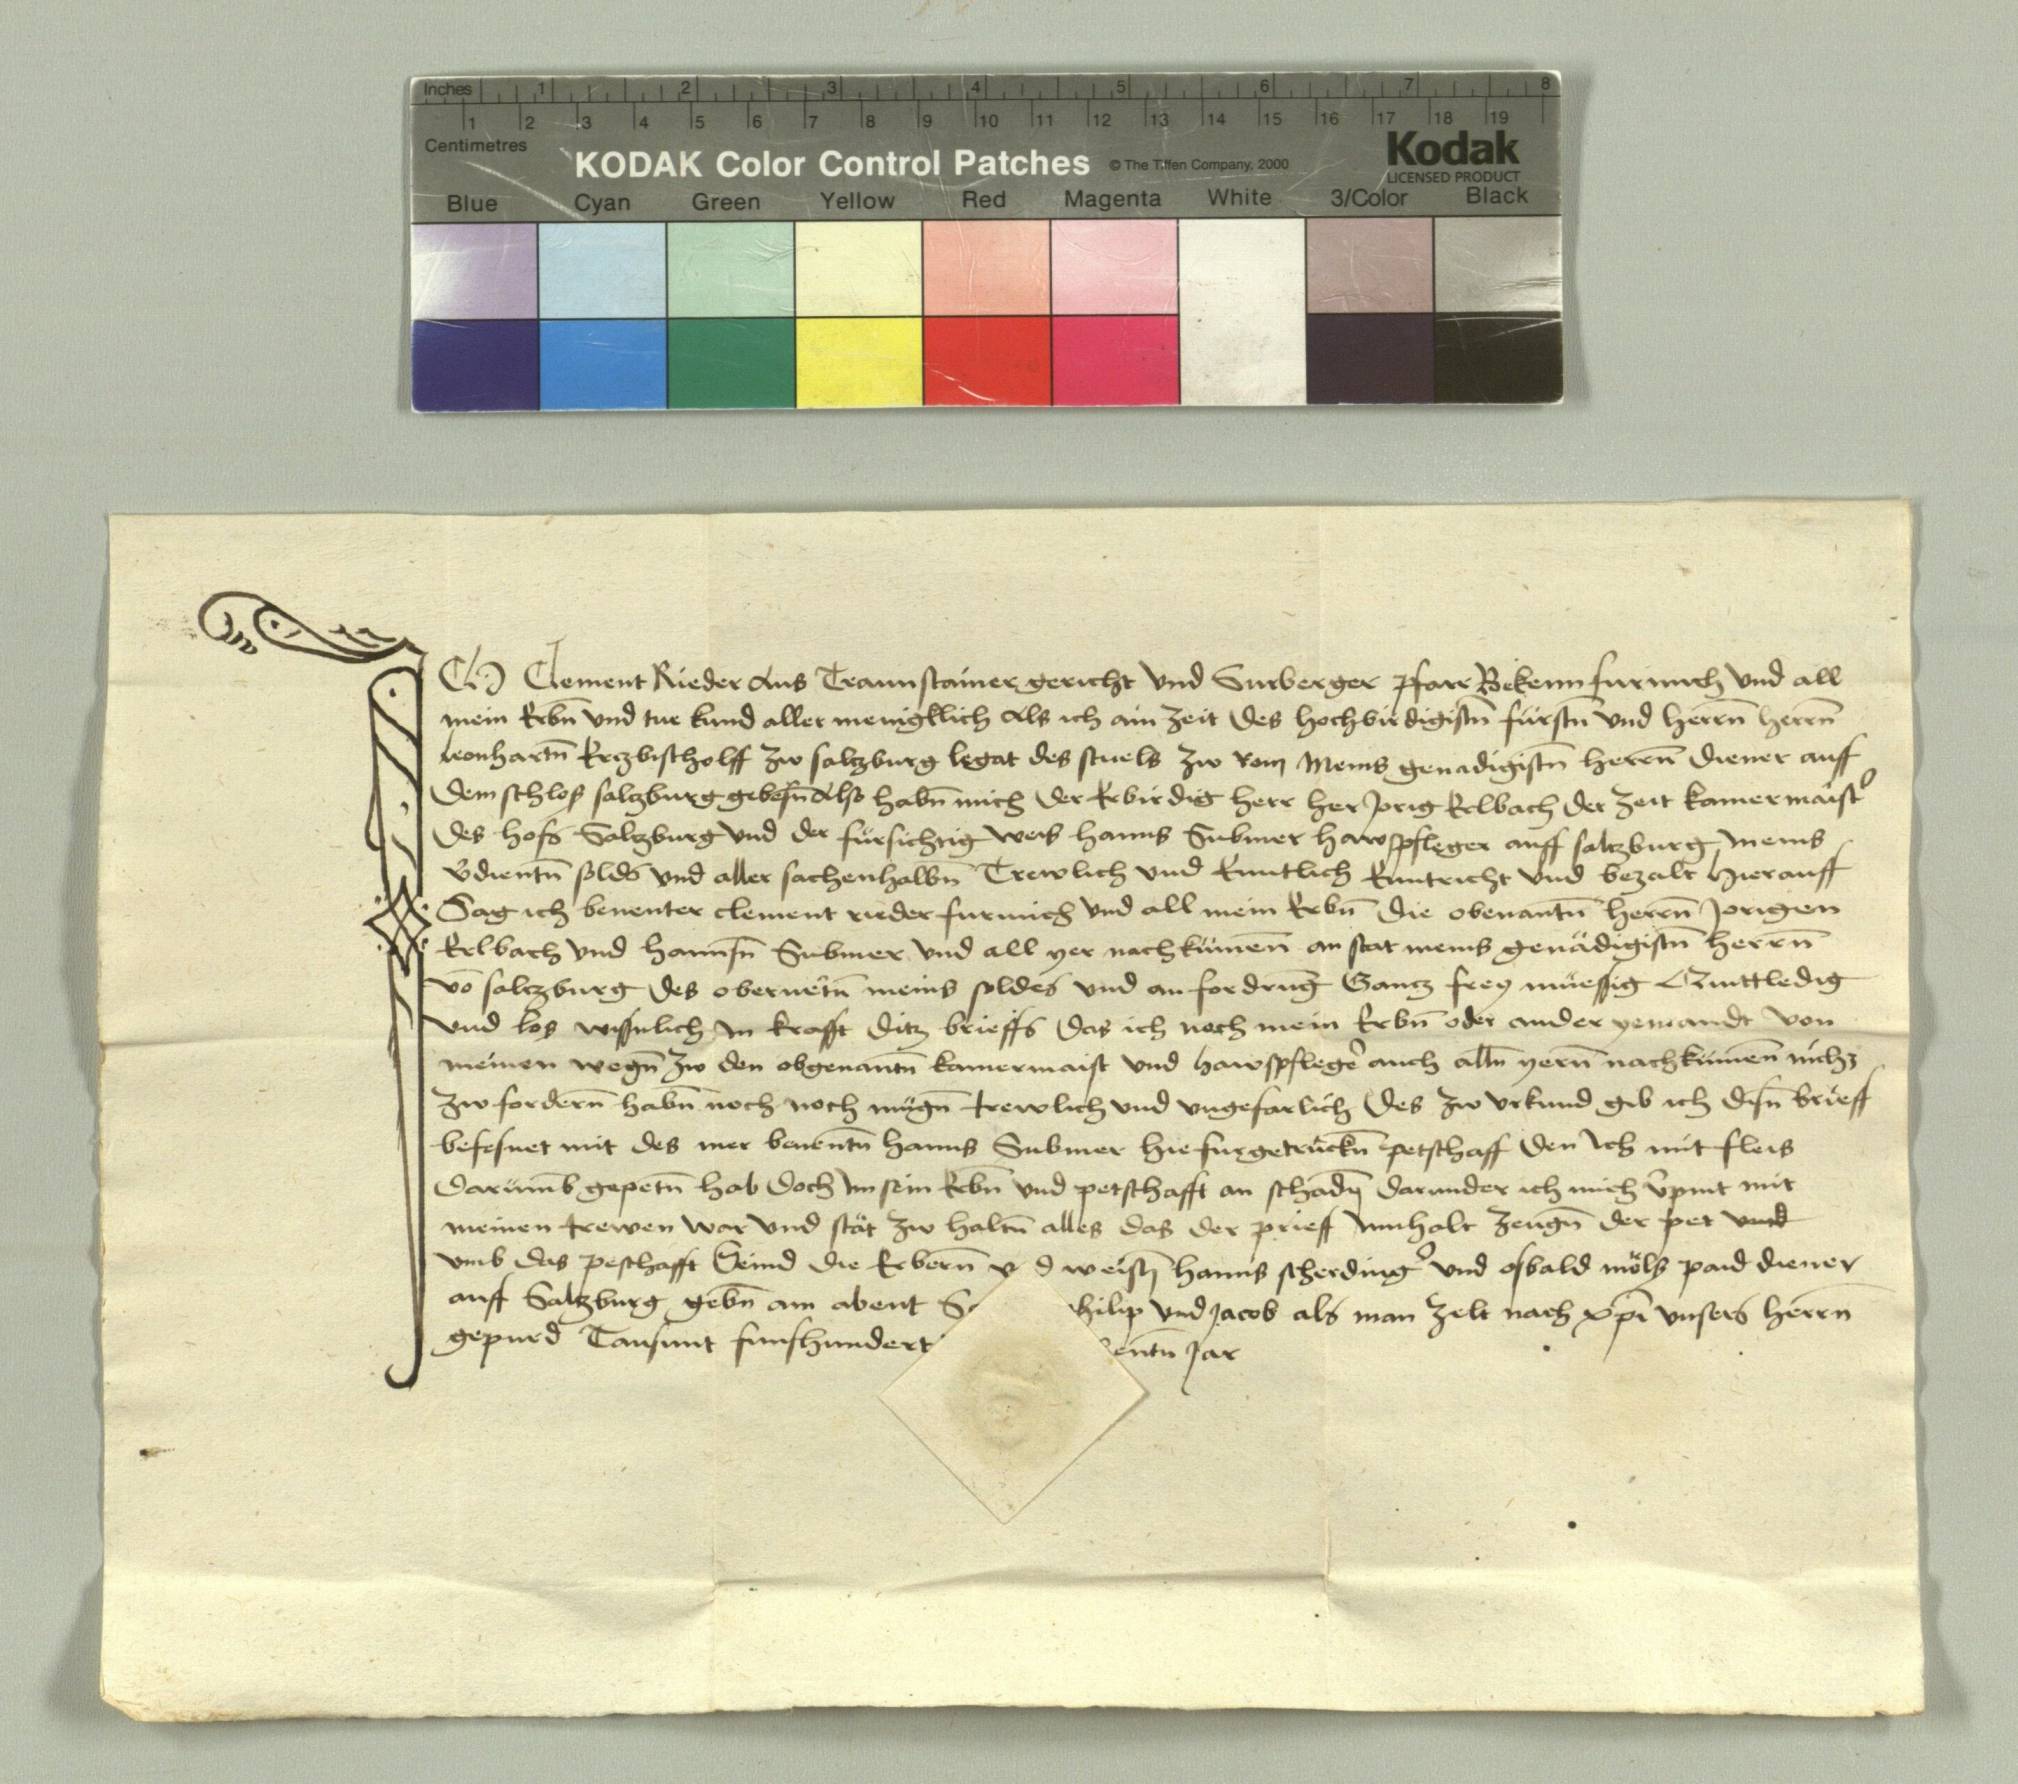 Inches 1 2 3 4 5 6 7 8
1 2 3 4 5 6 7 8 9 10 11 12 13 14 15 16 17 18 19
Centimetres
KODAK Color Control Patches © The Tiffen Company, 2000 Kodak
LICENSED PRODUCT
Blue Cyan Green Yellow Red Magenta White 3/Color Black
Ich Clement Rieder Aus Traunstainer gericht Vnd Surberger pfarr Bekenn fur mich Vnd all
mein Erbn̄ Vnd tue kund aller menigklich Als ich ain zeit des hochbirdigistn̄ fürstn̄ Vnd herrn̄ herrn̄
leonhartn̄ Erzbischolff zw saltzburg legat des stuels zw Rom Meins genadigistn̄ herrn̄ diener auff
dem schlos saltzburg gebesn̄ Also habn̄ mich der Erbirdig herr her Jorig Elbach der zeit kamermaist
des hofs Saltzburg Vnd der fürsichtig weis hanns Submer hawspfleger auff saltzburg meins
v̄dientn̄ solds Vnd aller sachenhalbn̄ Trewlich Vnd Enntlich Enntricht Vnd bezalt Hierauff
Sag ich benenter clement rieder fur mich Vnd all mein Erbn̄ die obenantn̄ herrn̄ Jorigen
Elbach Vnd hannsn̄ Submer Vnd all yer nachkümen̄ an stat meins genädigistn̄ herrn̄
vō saltzburg des obernētn̄ meins soldes Vnd anfordrung Gantz frey müessig Quittledig
Vnd los wissnlich In krafft ditz brieffs das ich noch mein Erbn̄ oder ander yemandt Von
meinen wegn̄ zw den obgenantn̄ kamermaist Vnd hawspfleger auch alln̄ yern̄ nachkümen̄ nichz
zw fordern̄ habn̄ noch noch mügn̄ trewlich Vnd Vngefarlich des zw Vrkund gib ich disn̄ brieff
befesnet mit des mer benentn̄ hanns Submer hie furgetruckn̄ petschaff den Ich mit fleis
darumb gepetn̄ hab doch Im sein Erbn̄ Vnd petschafft an schadn̄ darunder ich mich v̄pint mit
meinen trewen war Vnd stät zw haltn̄ alles das der prieff Innhalt zeugn̄ der pet vmb
vmb das petschafft Seind die Erbern̄ weistn̄ hanns scherding Vnd osbald möls paid diener
auff Saltzburg gebn̄ am abent hilip Vnd Jacob als man zelt nach xp̄i Vnsers herrn̄
gepurd Tausunt funfhundert entn̄ Jar